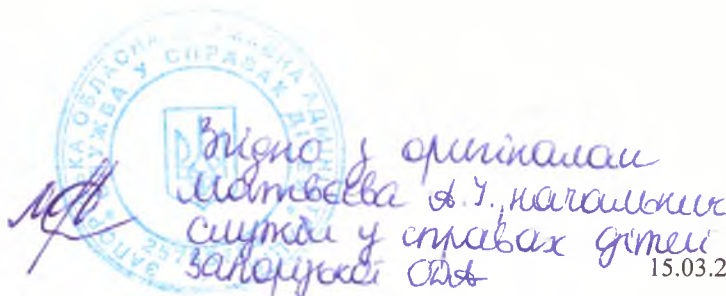 Згідно з оригіналом
Матвєєва А.І., начальник
служби у справах дітей
Запорізької ОДА
15.03.2
СЛУЖБА У СПРАВАХ